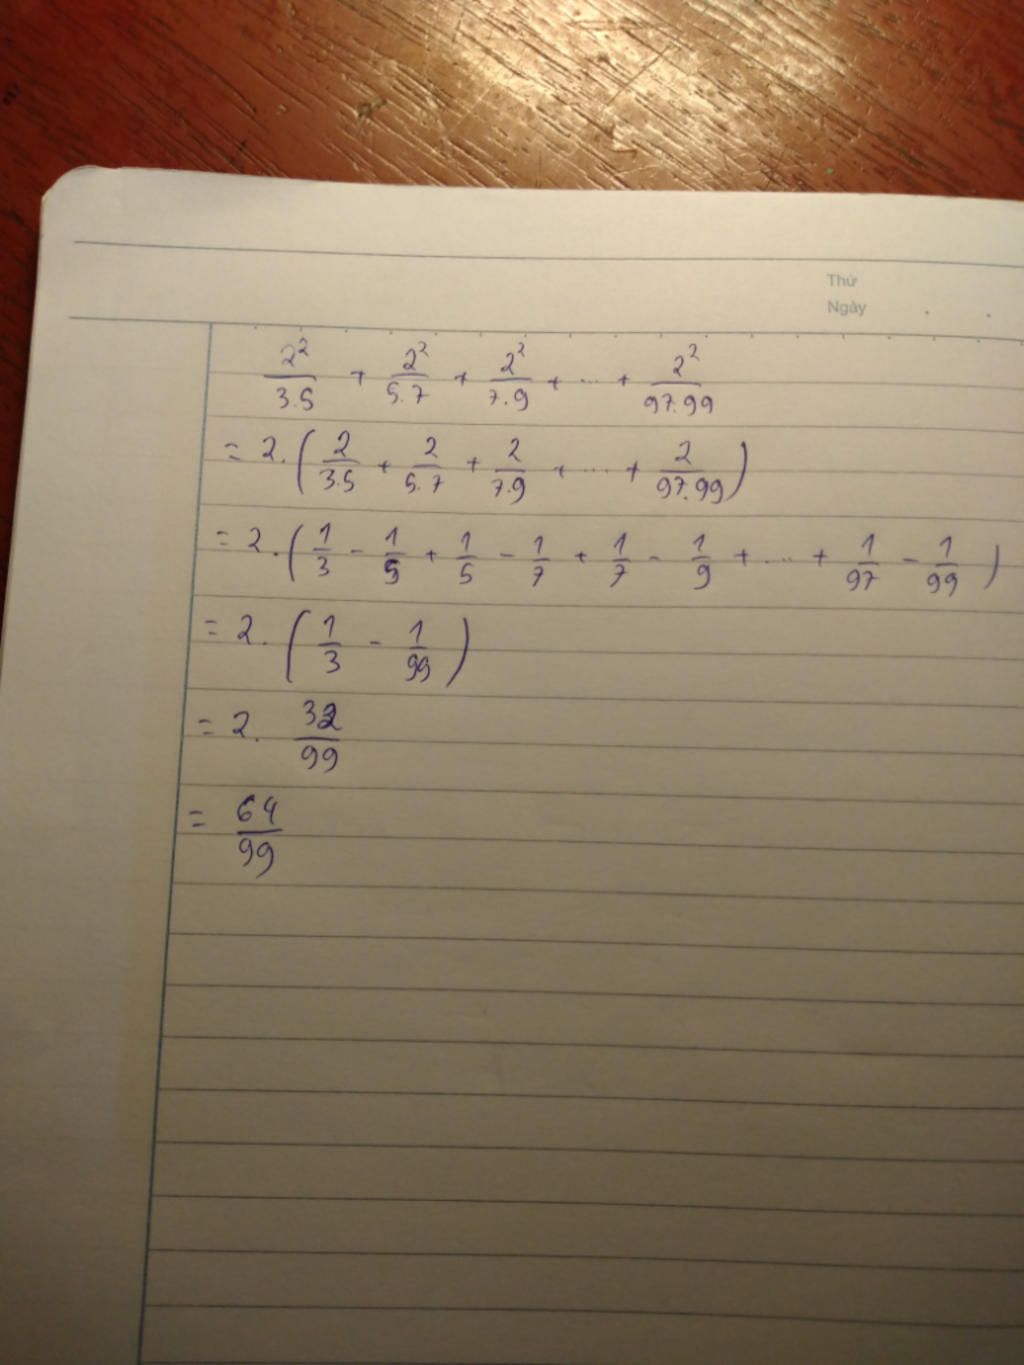 Thứ
Ngày
2²/3.5 + 2²/5.7 + 2²/7.9 + ... + 2²/97.99
= 2.(2/3.5 + 2/5.7 + 2/7.9 + ... + 2/97.99)
= 2.(1/3 - 1/5 + 1/5 - 1/7 + 1/7 - 1/9 + ... + 1/97 - 1/99)
= 2.(1/3 - 1/99)
= 2. 32/99
= 64/99